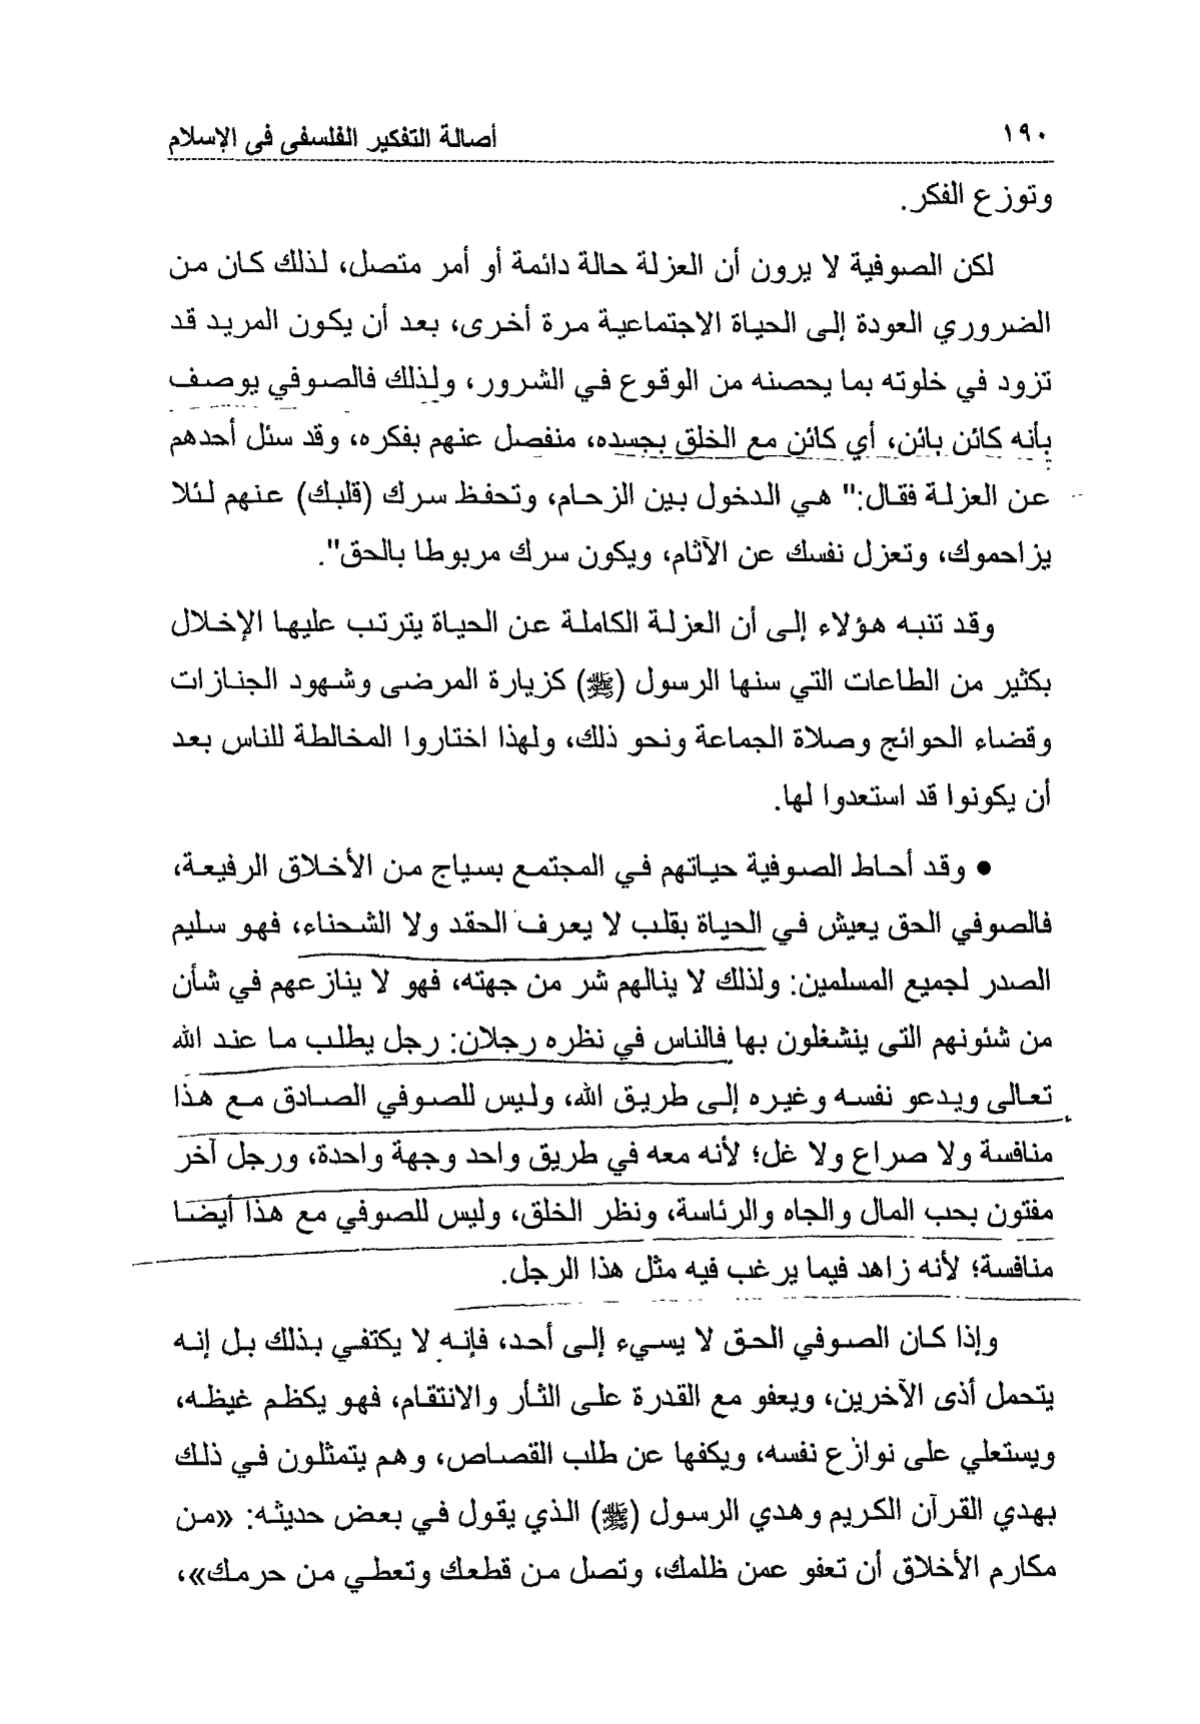 ١٩٠
أصالة التفكير الفلسفى فى الإسلام
وتوزع الفكر.
لكن الصوفية لا يرون أن العزلة حالة دائمة أو أمر متصل، لذلك كان من
الضروري العودة إلى الحياة الاجتماعية مرة أخرى، بعد أن يكون المريد قد
تزود في خلوته بما يحصنه من الوقوع في الشرور، ولذلك فالصوفي يوصف
بأنه كائن بائن، أي كائن مع الخلق بجسده، منفصل عنهم بفكره، وقد سئل أحدهم
عن العزلة فقال:" هي الدخول بين الزحام، وتحفظ سرك (قلبك) عنهم لئلا
يزاحموك، وتعزل نفسك عن الآثام، ويكون سرك مربوطا بالحق".
وقد تنبه هؤلاء إلى أن العزلة الكاملة عن الحياة يترتب عليها الإخلال
بكثير من الطاعات التي سنها الرسول (ﷺ) كزيارة المرضى وشهود الجنازات
وقضاء الحوائج وصلاة الجماعة ونحو ذلك، ولهذا اختاروا المخالطة للناس بعد
أن يكونوا قد استعدوا لها.
• وقد أحاط الصوفية حياتهم في المجتمع بسياج من الأخلاق الرفيعة،
فالصوفي الحق يعيش في الحياة بقلب لا يعرف الحقد ولا الشحناء، فهو سليم
الصدر لجميع المسلمين: ولذلك لا ينالهم شر من جهته، فهو لا ينازعهم في شأن
من شئونهم التى ينشغلون بها فالناس في نظره رجلان: رجل يطلب ما عند الله
تعالى ويدعو نفسه وغيره إلى طريق الله، وليس للصوفي الصادق مع هذا
منافسة ولا صراع ولا غل؛ لأنه معه في طريق واحد وجهة واحدة، ورجل آخر
مفتون بحب المال والجاه والرئاسة، ونظر الخلق، وليس للصوفي مع هذا أيضا
منافسة؛ لأنه زاهد فيما يرغب فيه مثل هذا الرجل.
وإذا كان الصوفي الحق لا يسيء إلى أحد، فإنه لا يكتفي بذلك بل إنه
يتحمل أذى الآخرين، ويعفو مع القدرة على الثأر والانتقام، فهو يكظم غيظه،
ويستعلي على نوازع نفسه، ويكفها عن طلب القصاص، وهم يتمثلون في ذلك
بهدي القرآن الكريم وهدي الرسول (ﷺ) الذي يقول في بعض حديثه: «من
مكارم الأخلاق أن تعفو عمن ظلمك، وتصل من قطعك وتعطي من حرمك»،